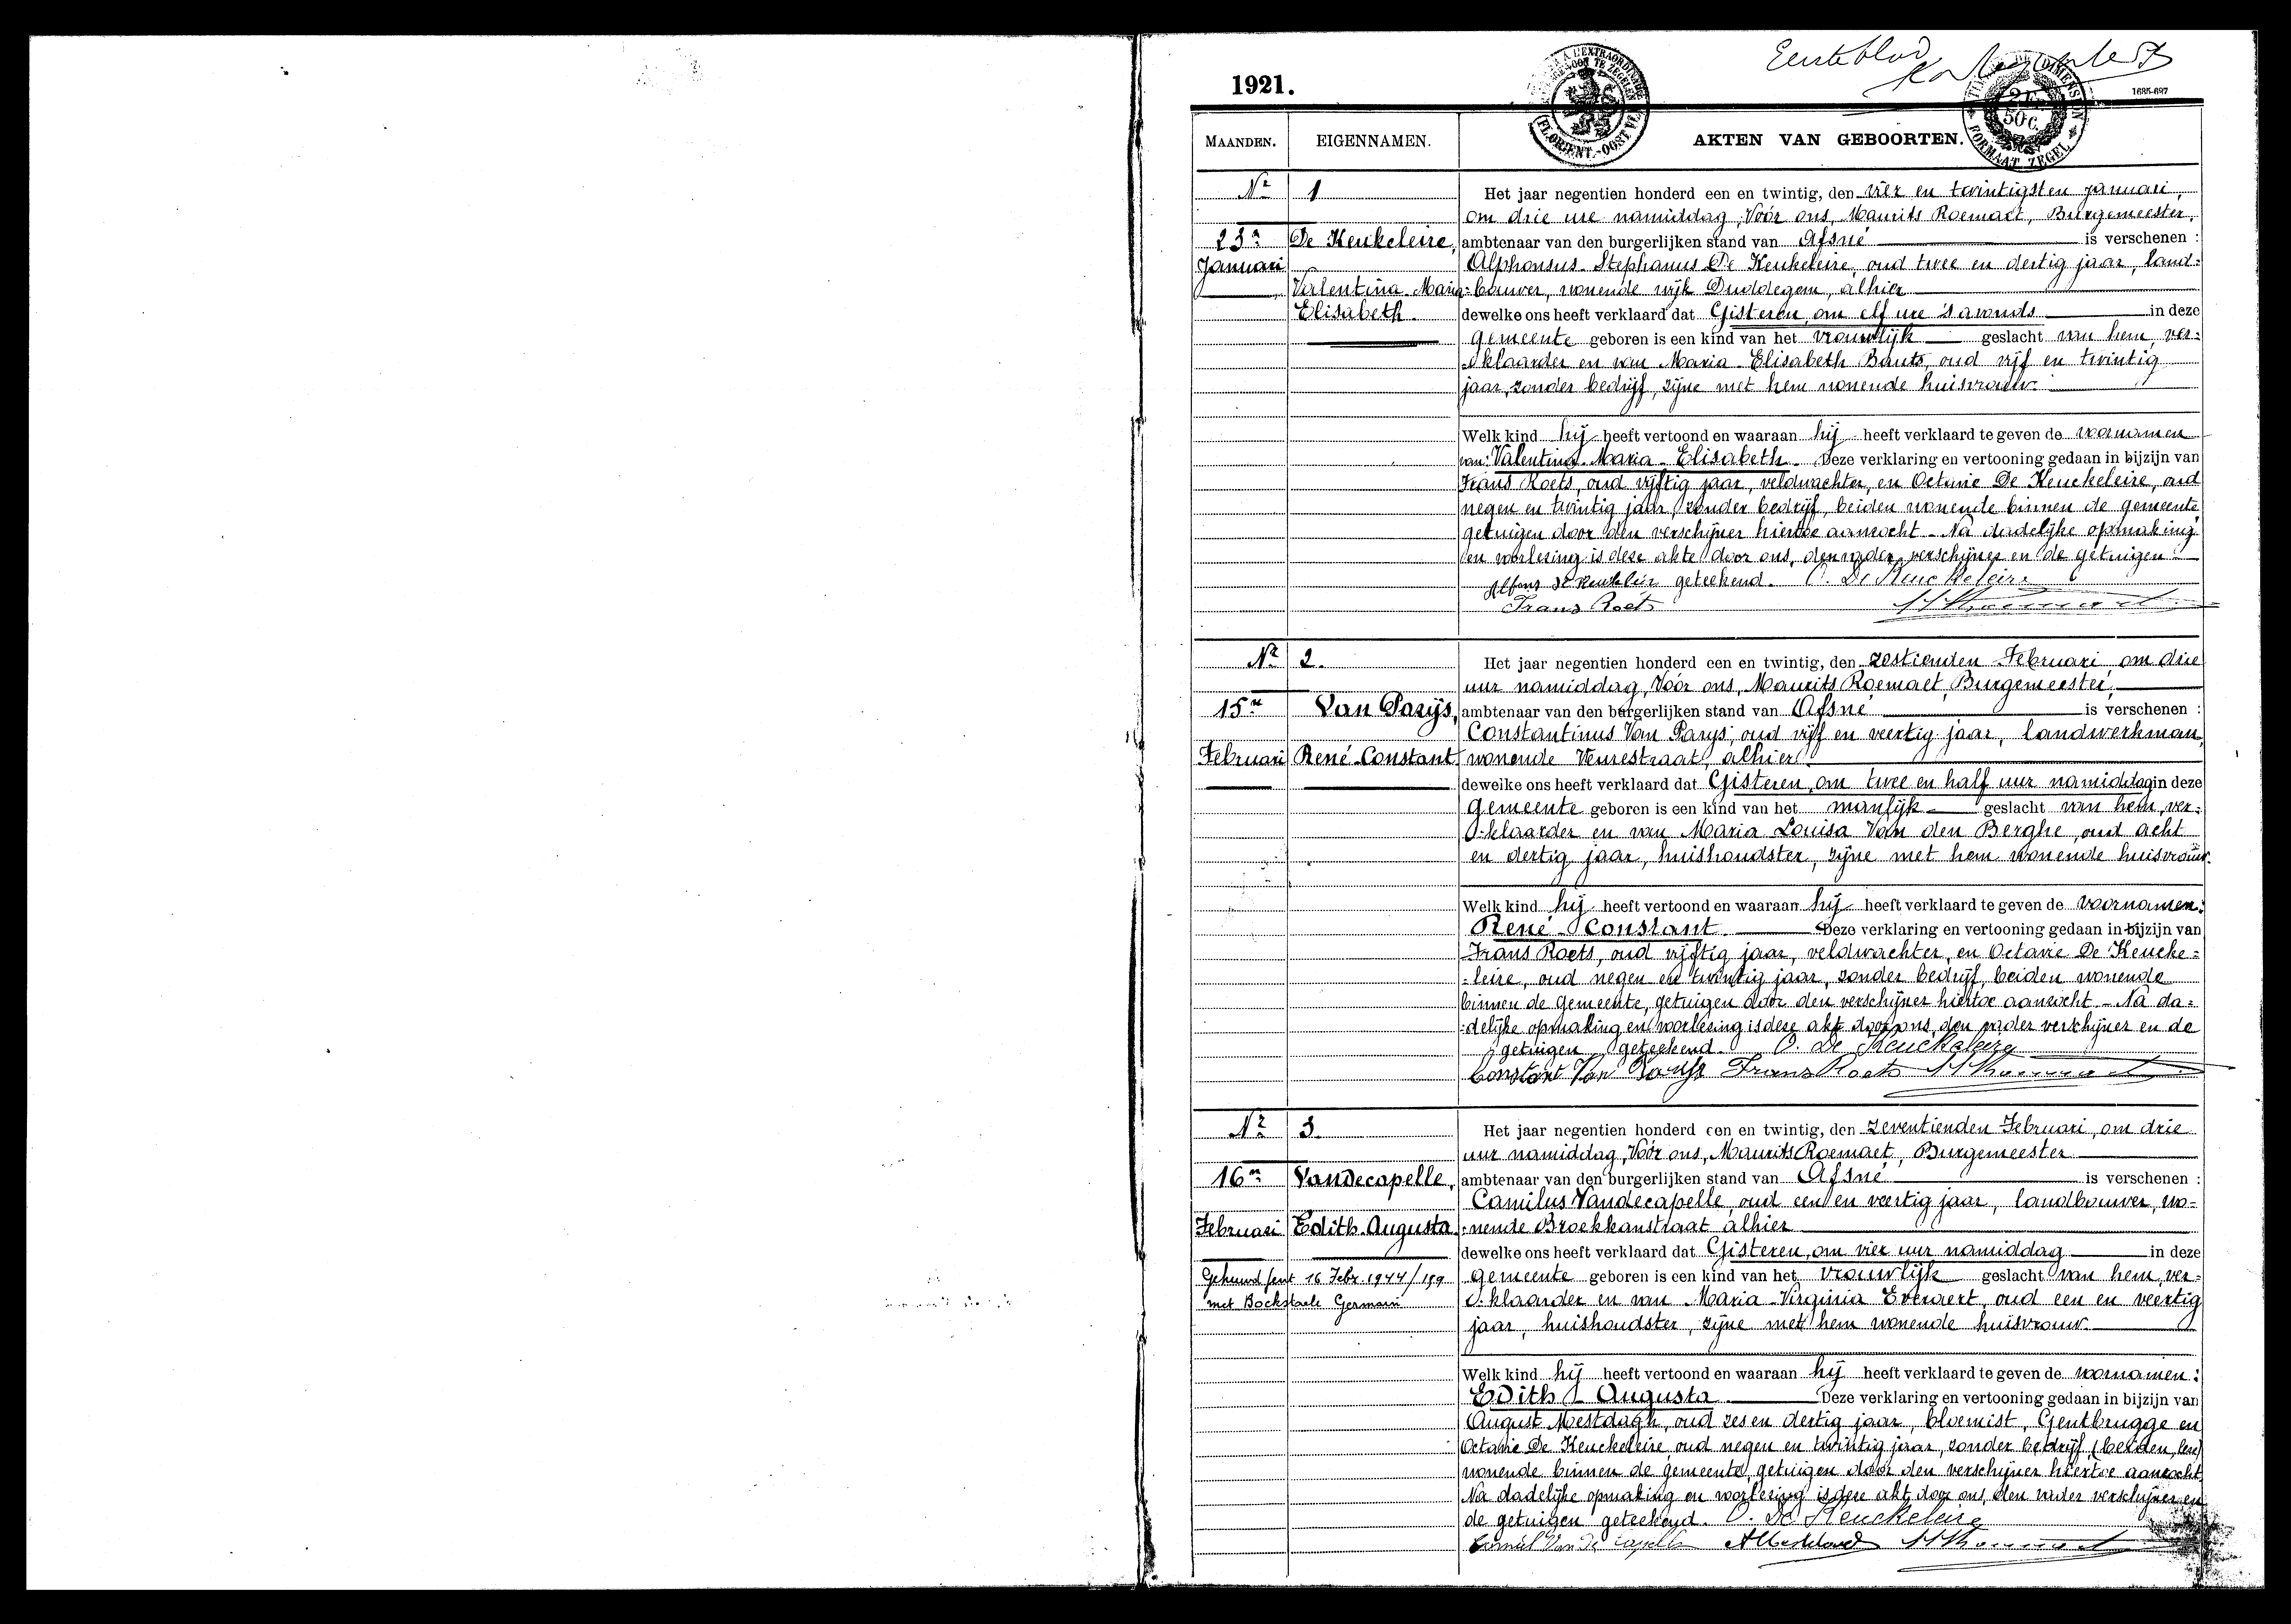 Eerste blad
1921.
1685-697
TIMBRE DE DIMENSION
2 Fr. 50 C.
FORMAAT ZEGEL
MAANDEN. EIGENNAMEN. AKTEN VAN GEBOORTEN.
Nr 1
23n Januari
De Keukeleire,
Valentina Maria
Elisabeth.
Het jaar negentien honderd een en twintig, den vier en twintigsten Januari,
om drie ure namiddag, Vóór ons, Maurits Roemaet, Burgemeester,
ambtenaar van den burgerlijken stand van Afsné is verschenen :
Alphonsus Stephanus De Keukeleire, oud twee en dertig jaar, land-
=bouwer, wonende wijk Duddegem, alhier
dewelke ons heeft verklaard dat Gisteren, om elf ure 's avonds in deze
gemeente geboren is een kind van het vrouwlijk geslacht van hem, ver=
klaarder en van Maria Elisabeth Bauts, oud vijf en twintig
jaar, zonder bedrijf, zijne met hem wonende huisvrouw.
Welk kind hij heeft vertoond en waaraan hij heeft verklaard te geven de voornamen
van: Valentina Maria Elisabeth. Deze verklaring en vertooning gedaan in bijzijn van
Frans Roets, oud vijftig jaar, veldwachter, en Octavie De Keuckeleire, oud
negen en twintig jaar, zonder bedrijf, beiden wonende binnen de gemeente,
getuigen door den verschijner hiertoe aanzocht. Na dadelijke opmaking
en voorlezing is deze akte door ons, den vader verschijner en de getuigen
Alfons De Keukeleir geteekend. O. De Keuckeleire
Frans Roets
Nr 2.
15n
Februari
Van Parijs,
René Constant
Het jaar negentien honderd een en twintig, den zestienden Februari, om drie
uur namiddag, Vóór ons, Maurits Roemaet, Burgemeester,
ambtenaar van den burgerlijken stand van Afsné is verschenen :
Constantinus Van Parys, oud vijf en veertig jaar, landwerkman,
wonende Veurestraat, alhier
dewelke ons heeft verklaard dat Gisteren, om twee en half uur namiddag in deze
gemeente geboren is een kind van het manlijk geslacht van hem, ver=
klaarder en van Maria Louisa Van den Berghe, oud acht
en dertig jaar, huishoudster, zijne met hem wonende huisvrouw.
Welk kind hij heeft vertoond en waaraan hij heeft verklaard te geven de voornamen:
René Constant. Deze verklaring en vertooning gedaan in bijzijn van
Frans Roets, oud vijftig jaar, veldwachter, en Octavie De Keucke=
=leire, oud negen en twintig jaar, zonder bedrijf, beiden wonende
binnen de gemeente, getuigen door den verschijner hiertoe aanzocht. Na da=
=delijke opmaking en voorlezing is deze akt door ons, den vader verschijner en de
getuigen geteekend. O. De Keuckeleire
Constant Van Parijs Frans Roets
Nr 3.
16n
Februari
Vandecapelle,
Edith Augusta.
Gehuwd Gent 16 Febr 1944/159
met Bockstaele Germain
Het jaar negentien honderd een en twintig, den zeventienden Februari, om drie
uur namiddag, Vóór ons, Maurits Roemaet, Burgemeester
ambtenaar van den burgerlijken stand van Afsné is verschenen :
Camilus Vandecapelle, oud een en veertig jaar, landbouwer, wo=
=nende Broekkanstraat alhier
dewelke ons heeft verklaard dat Gisteren, om vier uur namiddag in deze
gemeente geboren is een kind van het vrouwlijk geslacht van hem, ver=
klaarder en van Maria Virginia Everaert, oud een en veertig
jaar, huishoudster, zijne met hem wonende huisvrouw.
Welk kind hij heeft vertoond en waaraan hij heeft verklaard te geven de voornamen:
Edith Augusta. Deze verklaring en vertooning gedaan in bijzijn van
August Mestdagh, oud zes en dertig jaar, bloemist, Gentbrugge en
Octavie De Keuckeleire, oud negen en twintig jaar, zonder bedrijf, (beiden,
wonende binnen de gemeente, getuigen door den verschijner hiertoe aanzocht
Na dadelijke opmaking en voorlezing is deze akt door ons, den vader verschijner en
de getuigen geteekend. O. De Keuckeleire
Camiel Van De Capelle